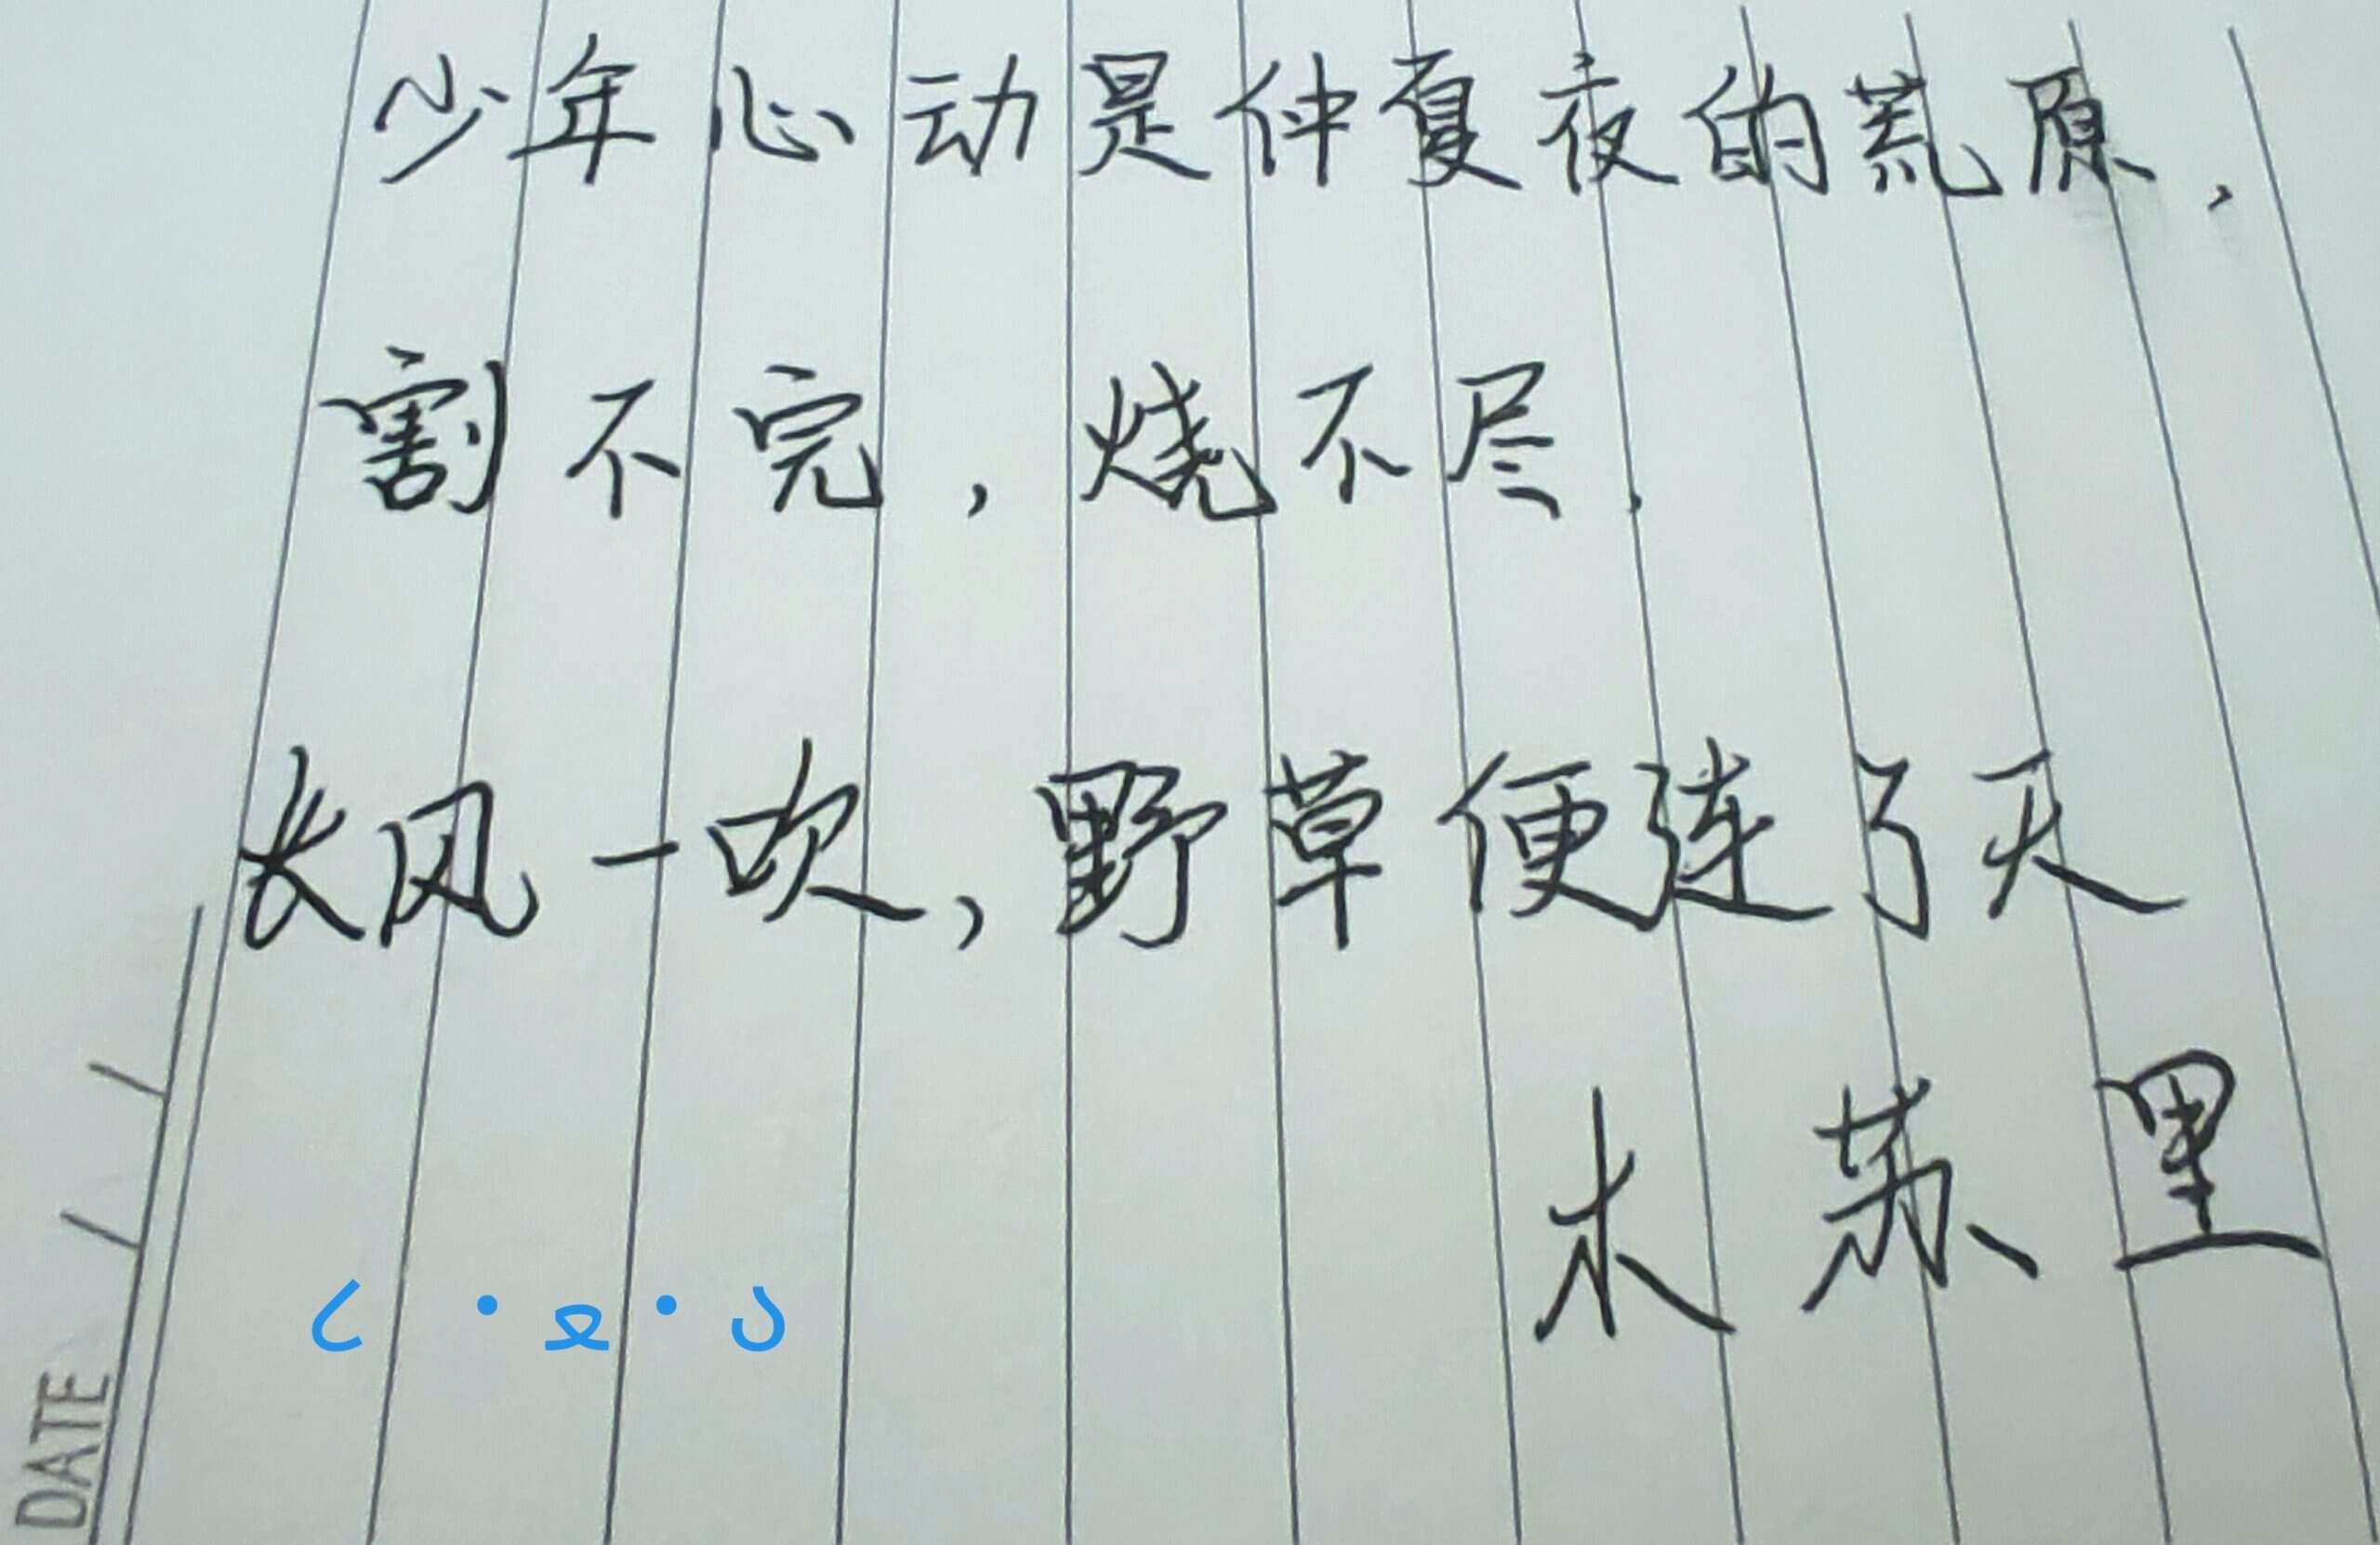 少年心动是仲夏夜的荒原,
割不完,烧不尽,
长风一吹,野草便连了天
木苏里
DATE